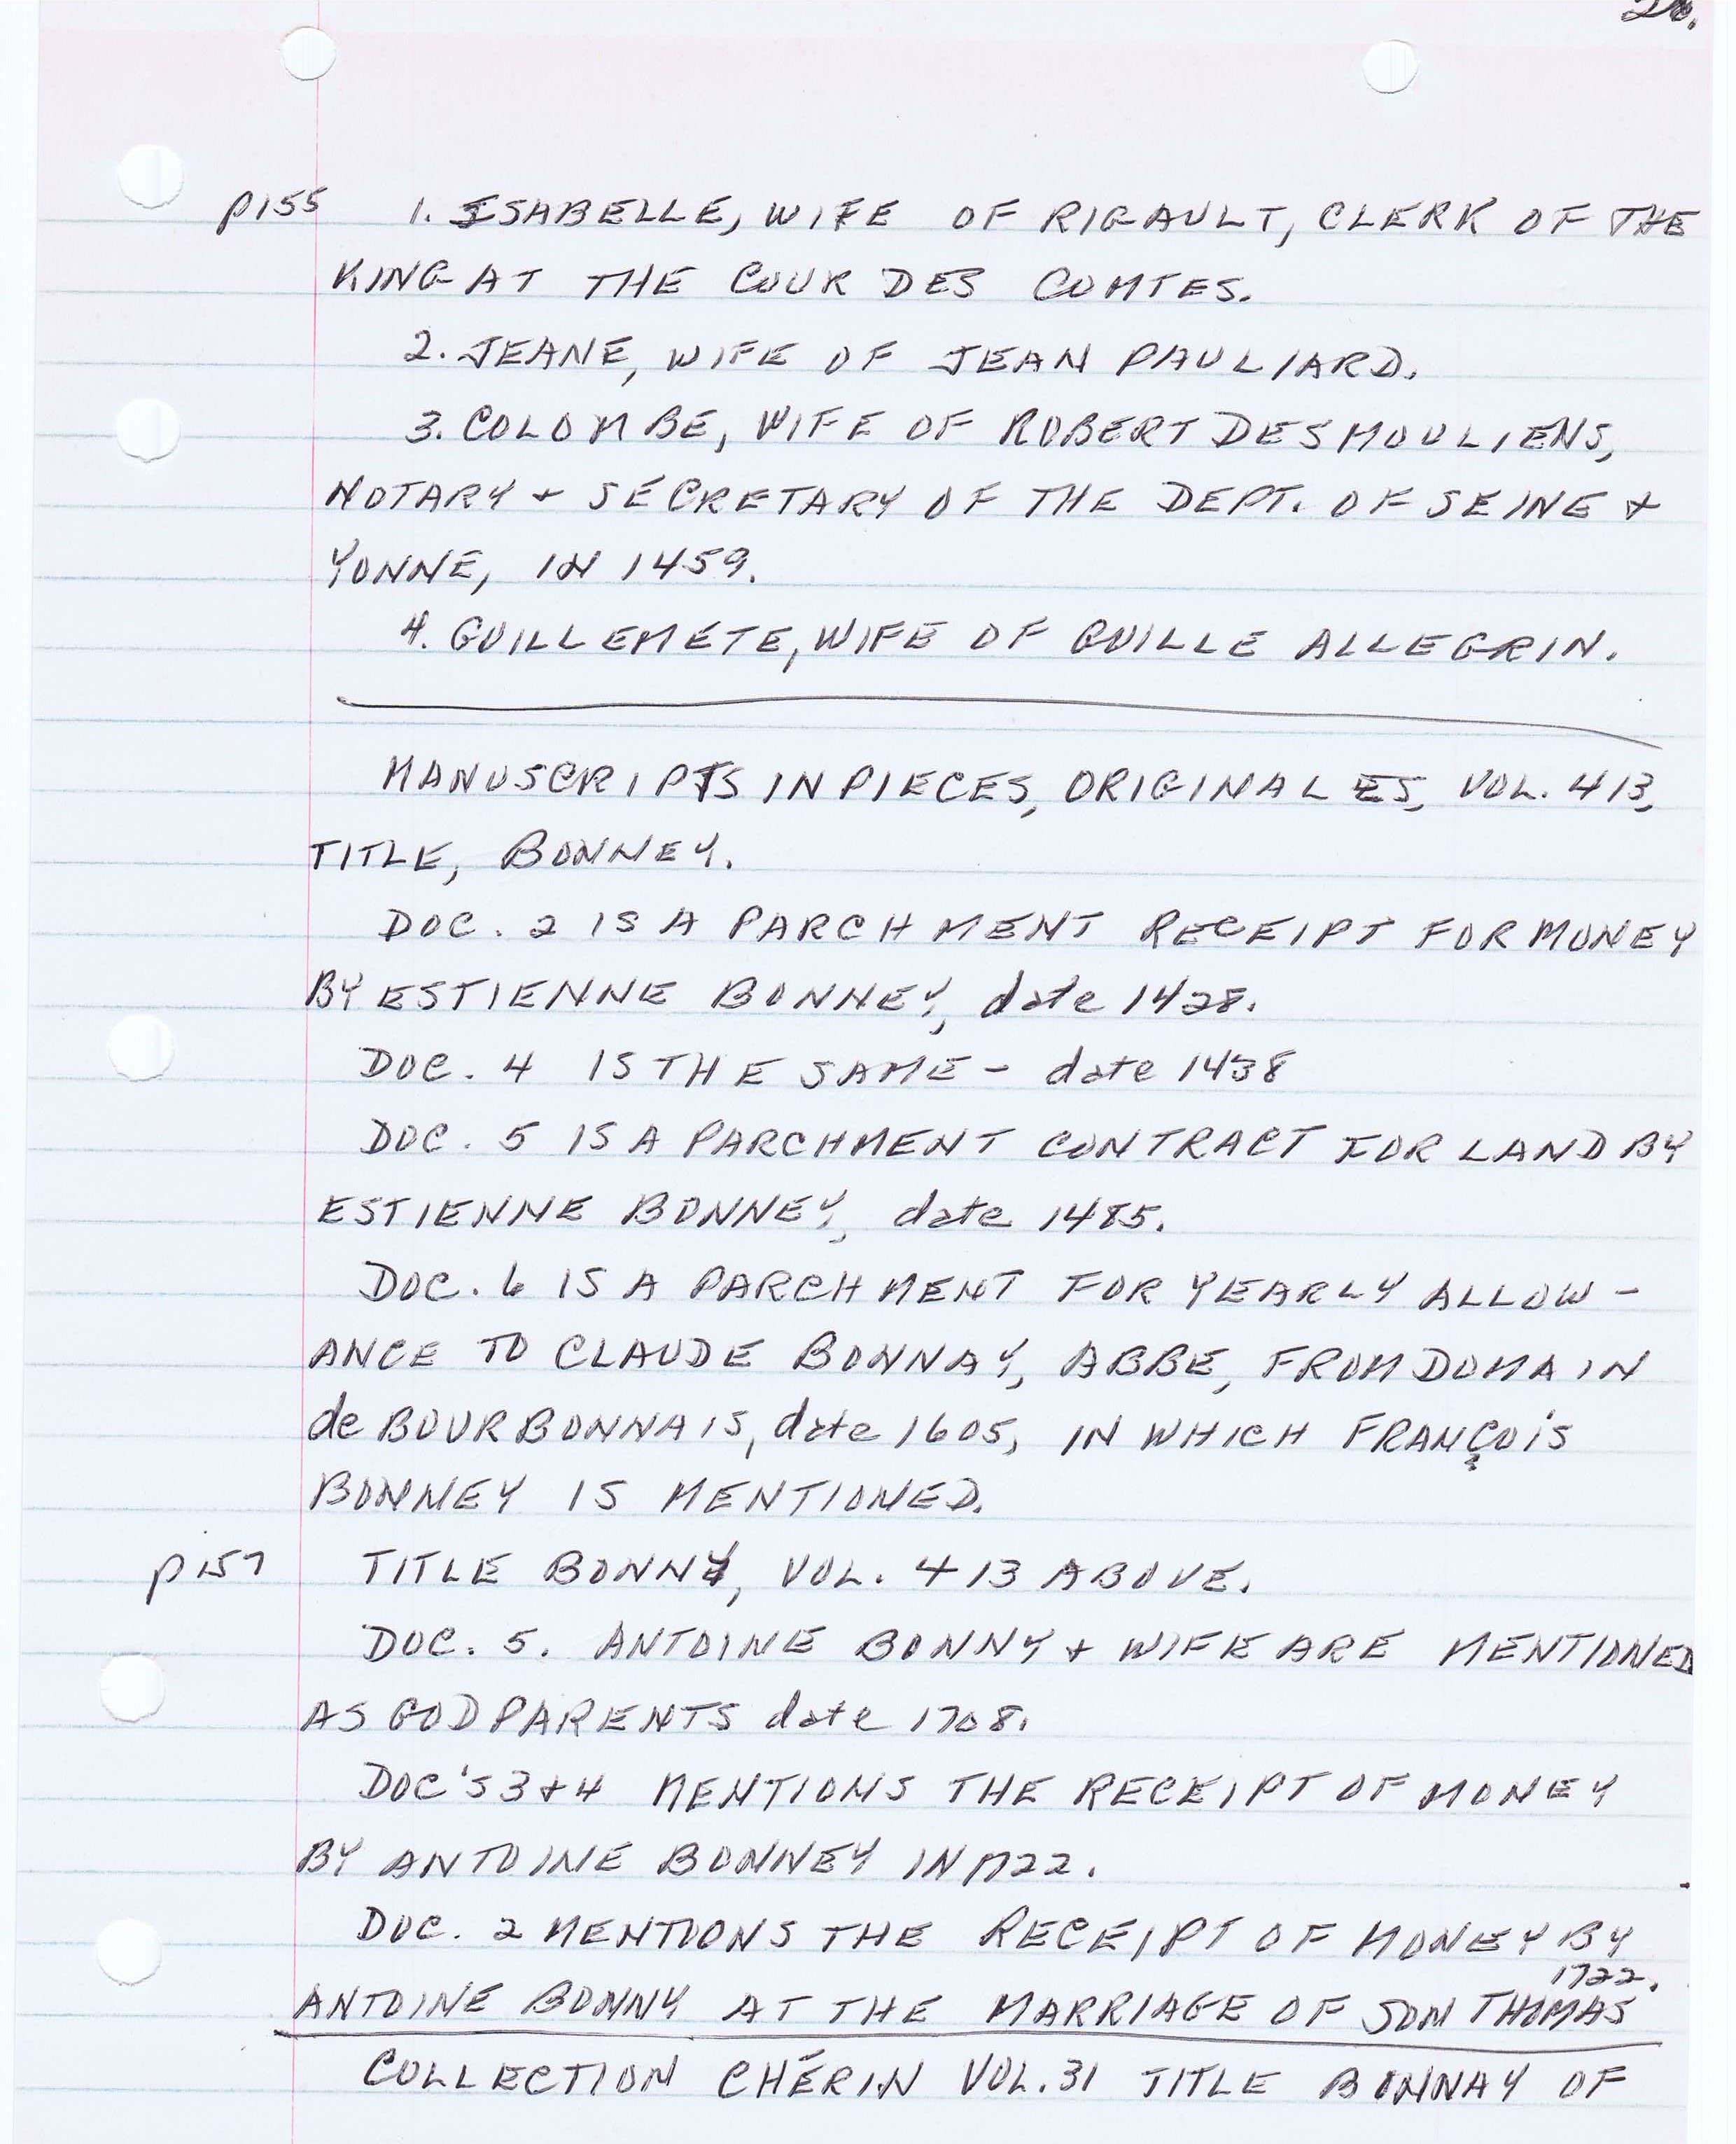 26.
p155 1. ISABELLE, WIFE OF RIGAULT, CLERK OF THE
KING AT THE COUR DES COMTES.
2. JEANE, WIFE OF JEAN PAULIARD.
3. COLOMBE, WIFE OF ROBERT DESMOULIENS,
NOTARY + SECRETARY OF THE DEPT. OF SEINE +
YONNE, IN 1459.
4. GUILLEMETE, WIFE OF GUILLE ALLEGRIN.
MANUSCRIPTS IN PIECES, ORIGINALES, VOL. 413,
TITLE, BONNEY.
DOC. 2 IS A PARCHMENT RECEIPT FOR MONEY
BY ESTIENNE BONNEY, date 1428.
DOC. 4 IS THE SAME - date 1438
DOC. 5 IS A PARCHMENT CONTRACT FOR LAND BY
ESTIENNE BONNEY, date 1485.
DOC. 6 IS A PARCHMENT FOR YEARLY ALLOW-
ANCE TO CLAUDE BONNAY, ABBE, FROM DOMAIN
de BOURBONNAIS, date 1605, IN WHICH FRANÇOIS
BONNEY IS MENTIONED.
p157 TITLE BONNY, VOL. 413 ABOVE.
DOC. 5. ANTOINE BONNY + WIFE ARE MENTIONED
AS GODPARENTS date 1708.
DOC'S 3+4 MENTIONS THE RECEIPT OF MONEY
BY ANTOINE BONNEY IN 1722.
DOC. 2 MENTIONS THE RECEIPT OF MONEY BY
1722.
ANTOINE BONNY AT THE MARRIAGE OF SON THOMAS
COLLECTION CHÉRIN VOL. 31 TITLE BONNAY OF